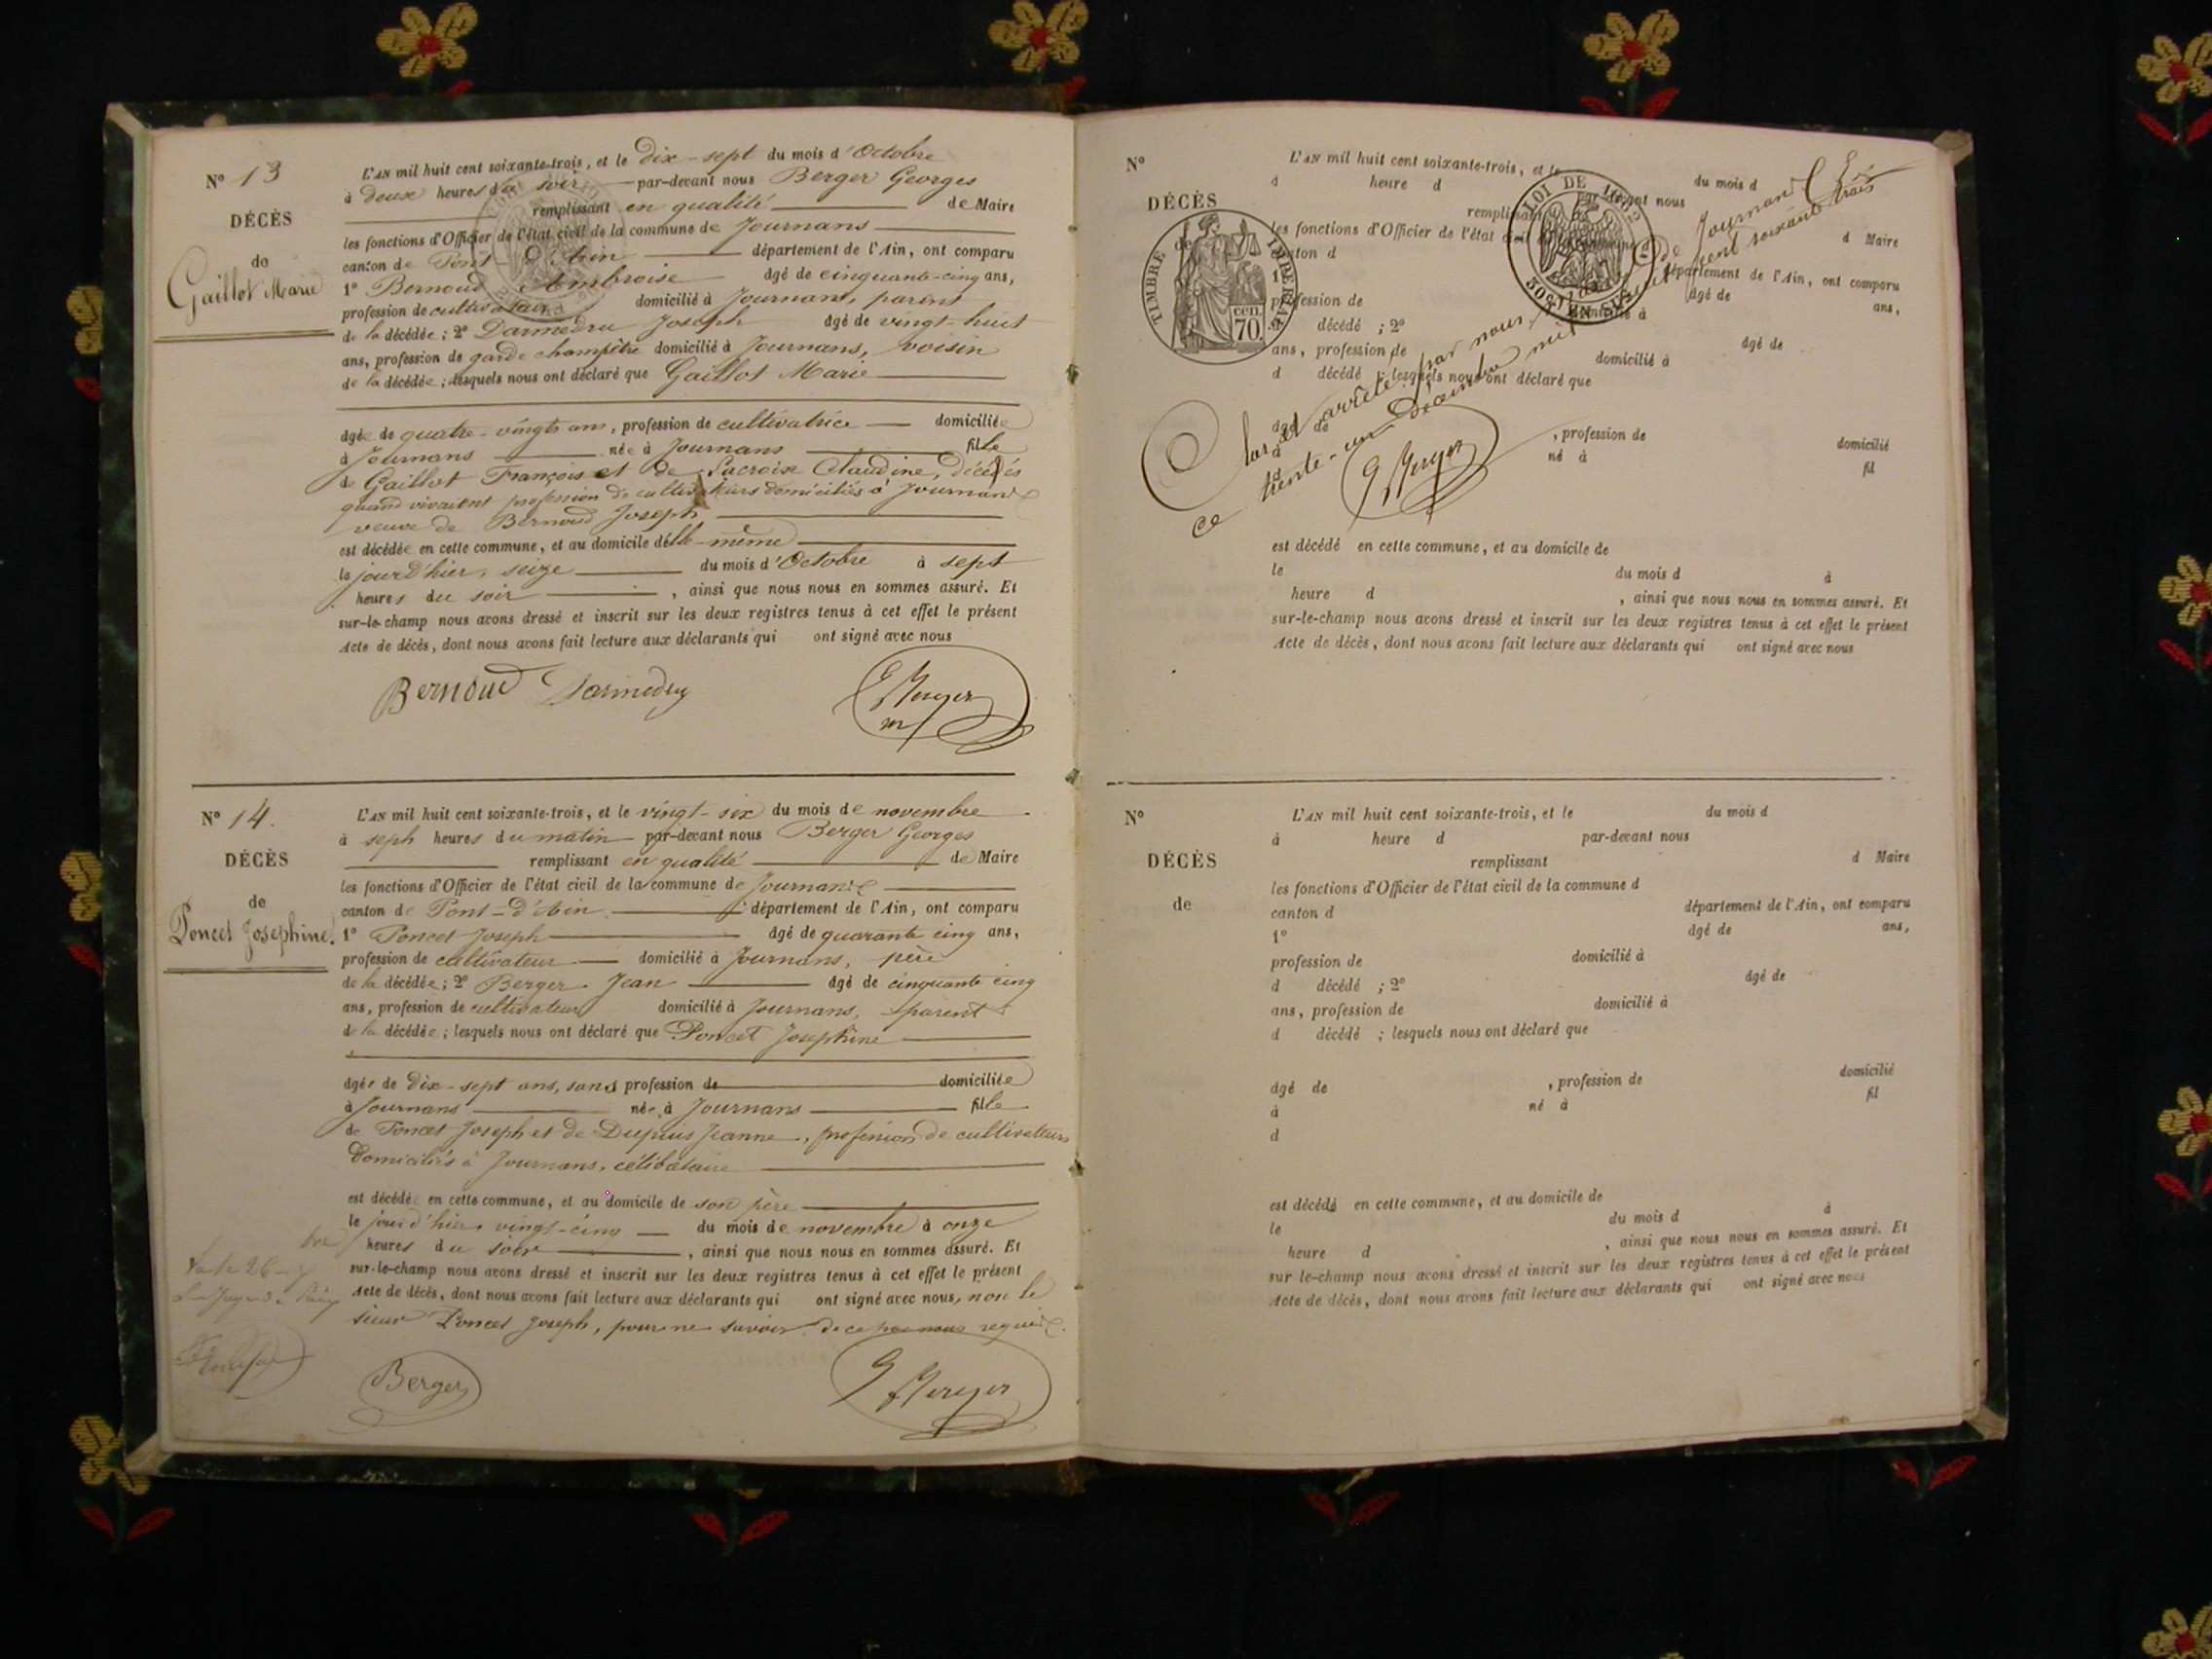 N° 13
DÉCÈS
de
Gaillot Marie
L'AN mil huit cent soixante-trois, et le dix-sept du mois d'Octobre
à deux heures du soir par-devant nous Berger Georges
remplissant en qualité de Maire
les fonctions d'Officier de l'état civil de la commune de Journans
canton de Pont-d'Ain département de l'Ain, ont comparu
1° Bernoud Ambroise âgé de cinquante-cinq ans,
profession de cultivateur domicilié à Journans, parent
de la décédée ; 2° Darmedru Joseph âgé de vingt-huit
ans, profession de garde champêtre domicilié à Journans, voisin
de la décédée ; lesquels nous ont déclaré que Gaillot Marie
âgée de quatre-vingts ans, profession de cultivatrice domiciliée
à Journans née à Journans fille
de Gaillot François et de Lacroix Claudine, décédés
quand vivaient profession de cultivateurs domiciliés à Journans
veuve de Bernoud Joseph
est décédée en cette commune, et au domicile d'elle-même
le jour d'hier, seize du mois d'Octobre à sept
heures du soir , ainsi que nous nous en sommes assuré. Et
sur-le-champ nous avons dressé et inscrit sur les deux registres tenus à cet effet le présent
Acte de décès, dont nous avons fait lecture aux déclarants qui ont signé avec nous
Bernoud Darmedru G Berger
N° 14.
DÉCÈS
de
Poncet Josephine.
L'AN mil huit cent soixante-trois, et le vingt-six du mois de novembre
à seph heures du matin par-devant nous Berger Georges
remplissant en qualité de Maire
les fonctions d'Officier de l'état civil de la commune de Journans
canton de Pont-d'Ain département de l'Ain, ont comparu
1° Poncet Joseph âgé de quarante cinq ans,
profession de cultivateur domicilié à Journans, père
de la décédée ; 2° Berger Jean âgé de cinquante cinq
ans, profession de cultivateur domicilié à Journans, parent
de la décédée ; lesquels nous ont déclaré que Poncet Josephine
âgée de dix-sept ans, sans profession de domiciliée
à Journans née à Journans fille
de Poncet Joseph et de Dupuis Jeanne, profession de cultivateurs
domiciliés à Journans, célibataire
est décédée en cette commune, et au domicile de son père
le jour d'hier vingt-cinq du mois de novembre à onze
heures du soir , ainsi que nous nous en sommes assuré. Et
sur-le-champ nous avons dressé et inscrit sur les deux registres tenus à cet effet le présent
Acte de décès, dont nous avons fait lecture aux déclarants qui ont signé avec nous, non le
sieur Poncet Joseph, pour ne savoir de ce par nous requis.
Berger G Berger
N°
DÉCÈS
de
TIMBRE IMPÉRIAL
70 cen.
LOI DE 1862
L'AN mil huit cent soixante-trois, et le du mois d
à heure d par-devant nous
remplissant d Maire
les fonctions d'Officier de l'état civil de la commune d
canton d département de l'Ain, ont comparu
1° âgé de ans,
profession de domicilié à
d décédé ; 2° âgé de
ans, profession de domicilié à
d décédé ; lesquels nous ont déclaré que
Clos et arrêté par nous, Maire de Journans
ce trente-un décembre mil huit cent soixante trois
G Berger
âgé de , profession de domicilié
à né à fil
d
est décédé en cette commune, et au domicile de
le du mois d à
heure d , ainsi que nous nous en sommes assuré. Et
sur-le-champ nous avons dressé et inscrit sur les deux registres tenus à cet effet le présent
Acte de décès, dont nous avons fait lecture aux déclarants qui ont signé avec nous
N°
DÉCÈS
de
L'AN mil huit cent soixante-trois, et le du mois d
à heure d par-devant nous
remplissant d Maire
les fonctions d'Officier de l'état civil de la commune d
canton d département de l'Ain, ont comparu
1° âgé de ans,
profession de domicilié à
d décédé ; 2° âgé de
ans, profession de domicilié à
d décédé ; lesquels nous ont déclaré que
âgé de , profession de domicilié
à né à fil
d
est décédé en cette commune, et au domicile de
le du mois d à
heure d , ainsi que nous nous en sommes assuré. Et
sur le-champ nous avons dressé et inscrit sur les deux registres tenus à cet effet le présent
Acte de décès, dont nous avons fait lecture aux déclarants qui ont signé avec nous